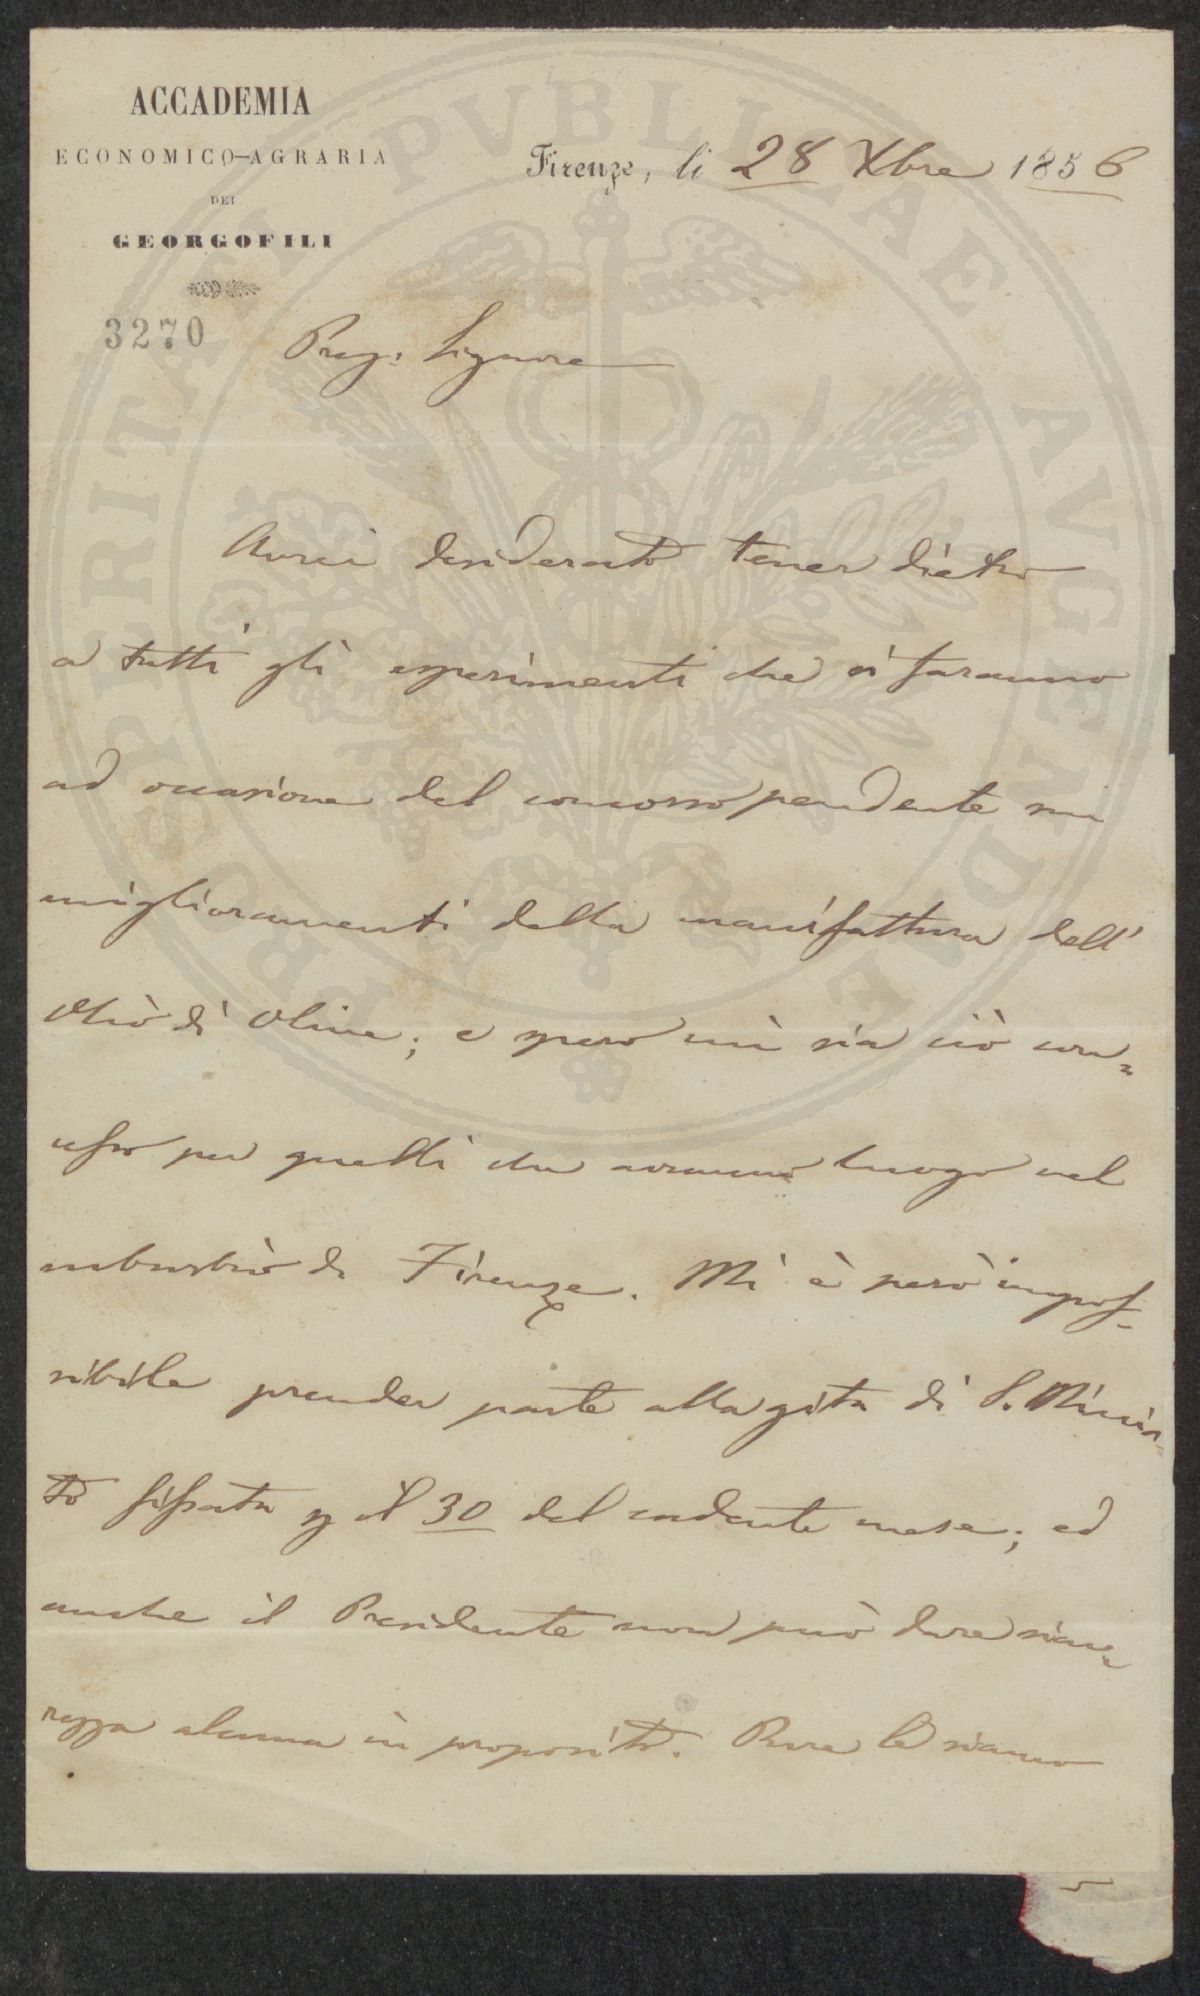 ACCADEMIA
ECONOMICO-AGRARIA
DEI
GEORGOFILI
Firenze, li 28 Xbre 1856
3270
Preg: Signore
Avrei desiderato tener dietro
a tutti gli esperimenti che si faranno
ad occasione del concorso pendente sui
miglioramenti della manifattura dell'
Olio di Olive; e spero mi sia ciò con=
cesso per quelli che avranno luogo nel
suburbio di Firenze. Mi è però impos=
sibile prender parte alla gita di S. Minia=
to fissata p il 30 del cadente mese; ed
anche il Presidente non può dare sicu=
rezza alcuna in proposito. Pure le siamo
PROSPERITATI PVBLICAE AVGENDAE